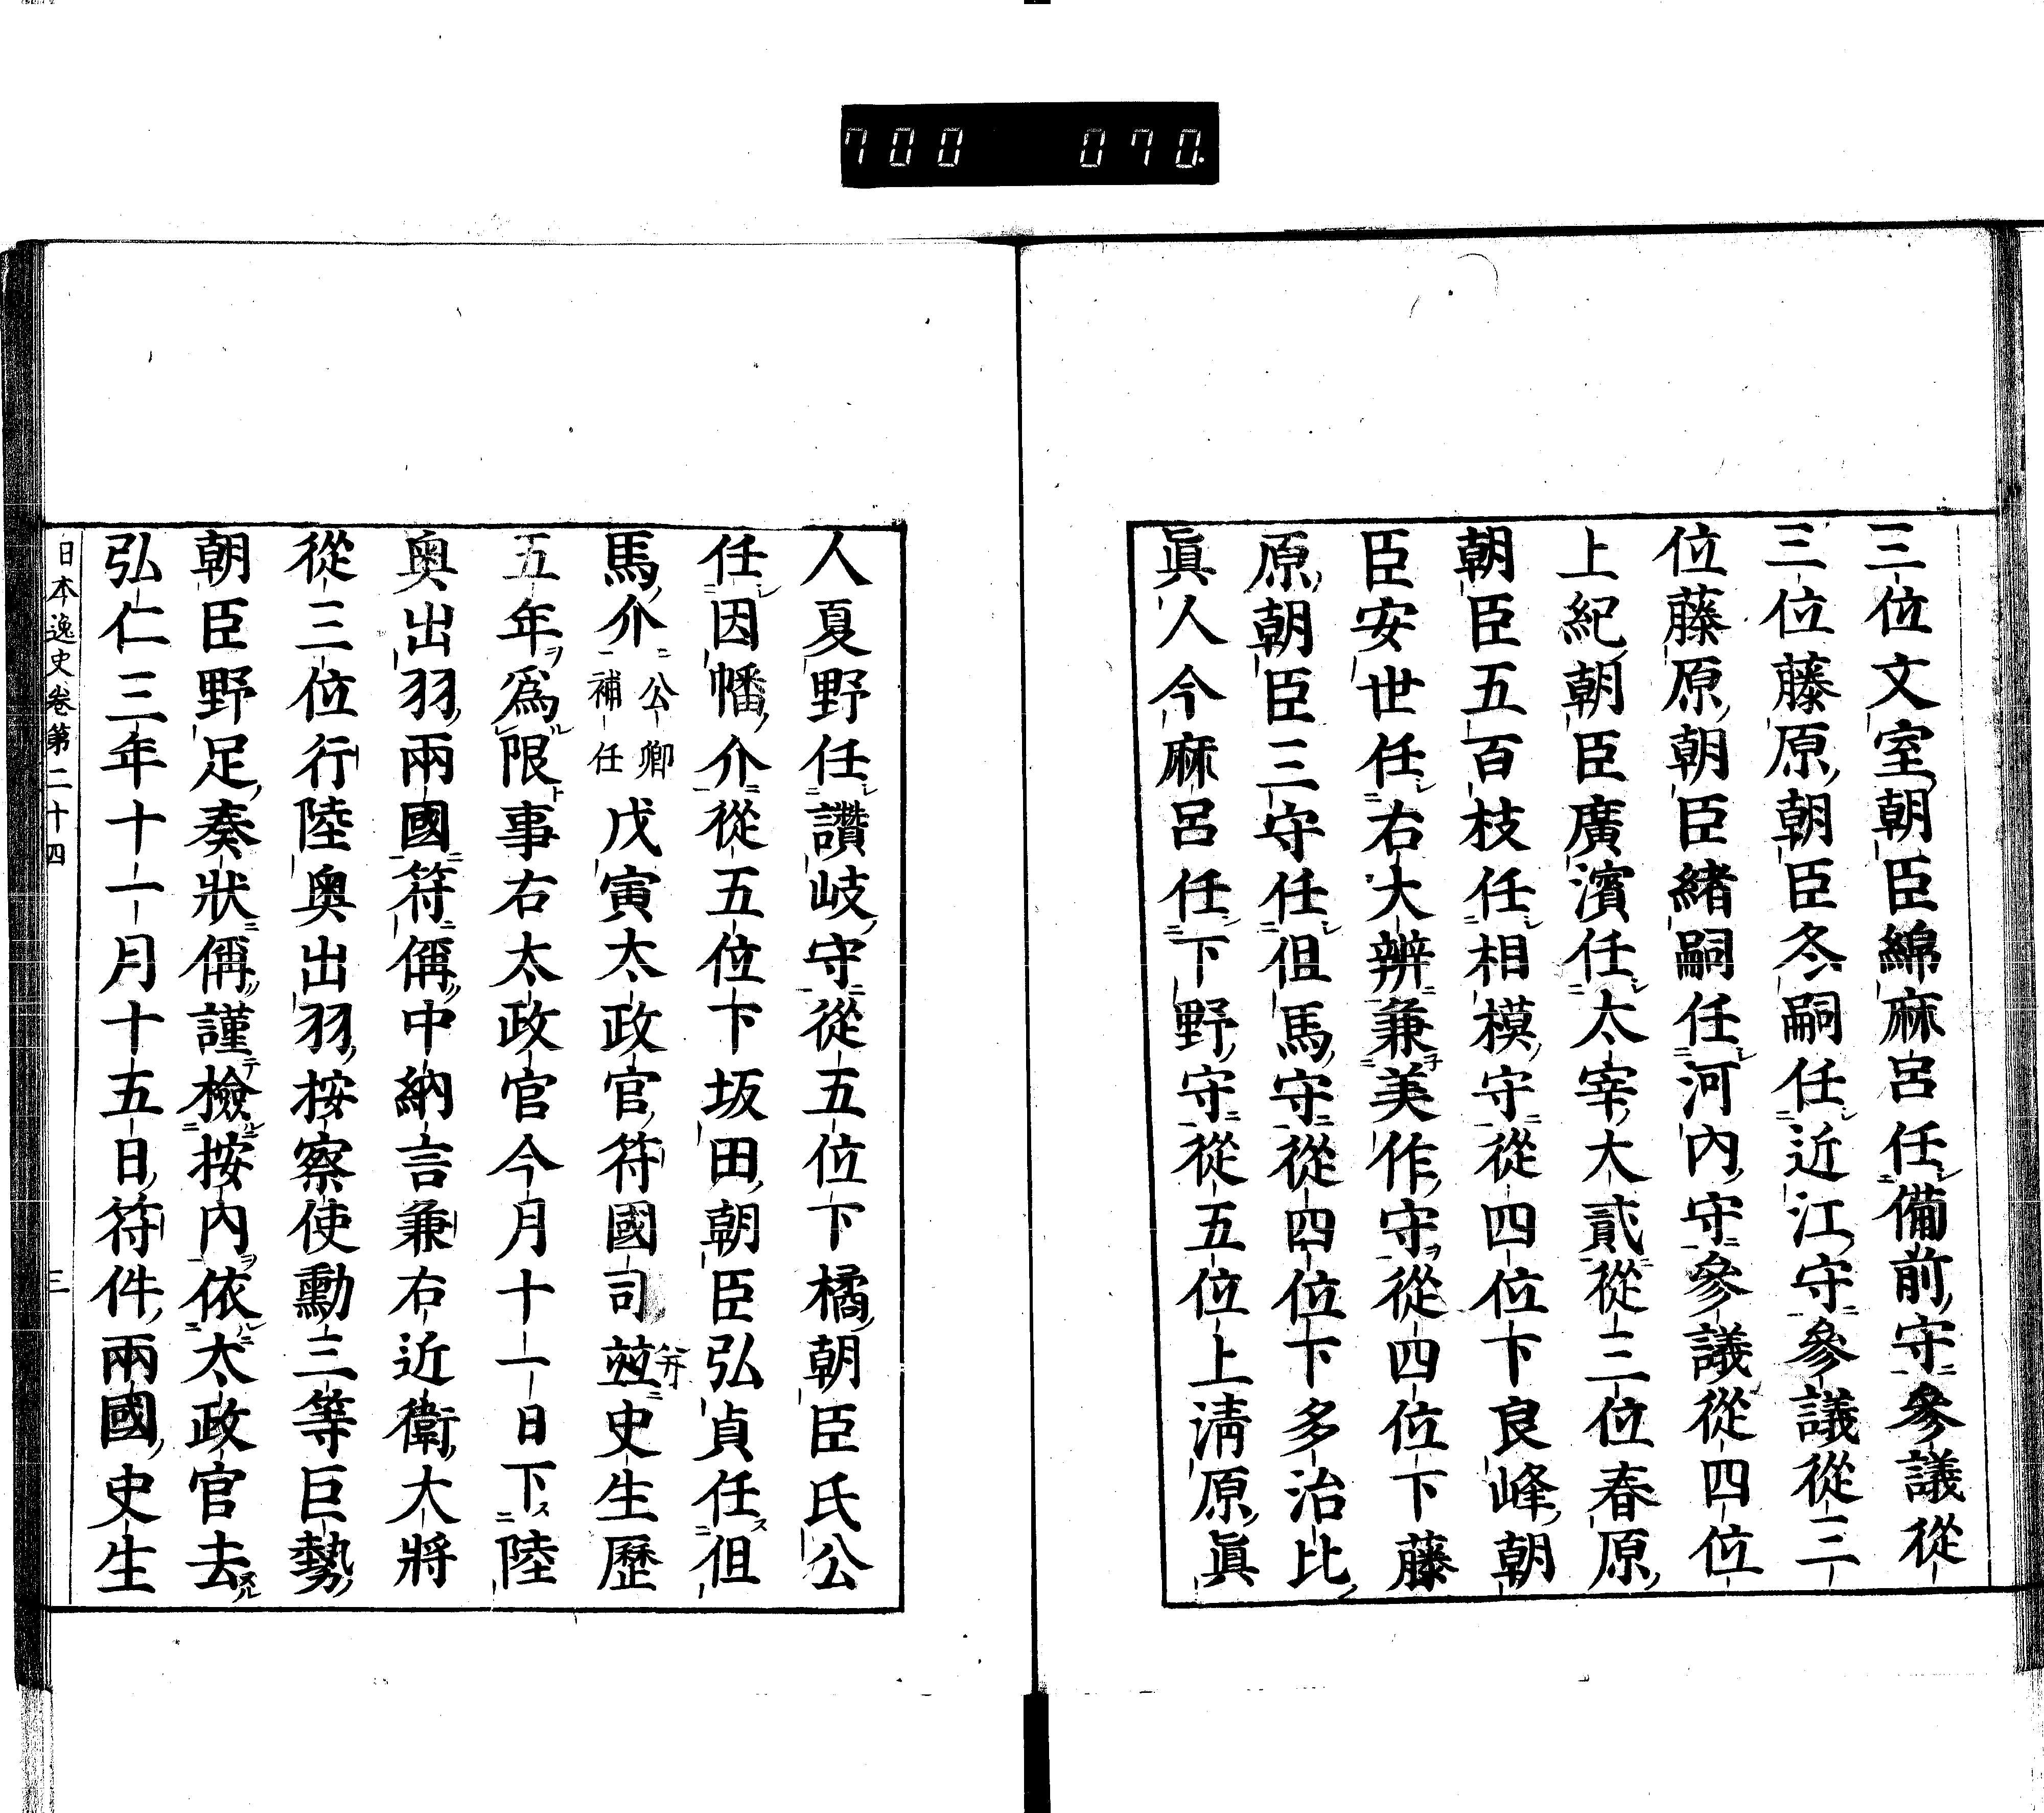 700 070
三位文室朝臣綿麻呂任備前守參議從
三位藤原朝臣冬嗣任近江守參議從三
位藤原朝臣緒嗣任河內守參議從四位
上紀朝臣廣濱任太宰大貳從三位春原
朝臣五百枝任相模守從四位下良峰朝
臣安世任右大辨兼美作守從四位下藤
原朝臣三守任但馬守從四位下多治比
眞人今麻呂任下野守從五位上淸原眞
人夏野任讚岐守從五位下橘朝臣氏公
任因幡介從五位下坂田朝臣弘貞任但
馬介公卿補任戊寅太政官符國司並史生歷
五年爲限事右太政官今月十一日下陸
奧出羽兩國符偁中納言兼右近衛大將
從三位行陸奧出羽按察使勳三等巨勢
朝臣野足奏狀偁謹檢按內依太政官去
弘仁三年十一月十五日符件兩國史生
日本逸史卷第二十四 三